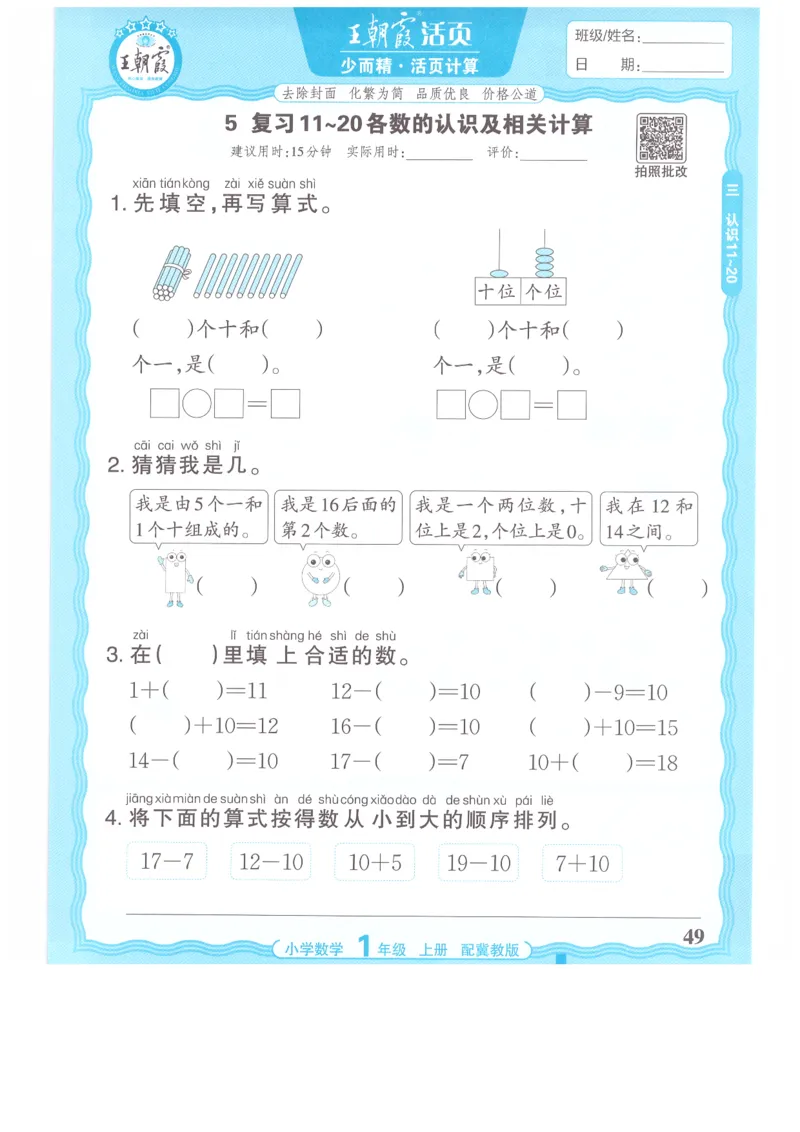 王朝霞
王朝霞 活页
少而精·活页计算
班级/姓名:
日 期:
去除封面 化繁为简 品质优良 价格公道
5 复习11~20各数的认识及相关计算
建议用时:15分钟 实际用时: 评价:
拍照批改
三 认识11~20
xiān tián kòng zài xiě suàn shì
1. 先填空,再写算式。
十位 个位
( )个十和( )
个一,是( )。
□○□=□
( )个十和( )
个一,是( )。
□○□=□
cāi cai wǒ shì jǐ
2. 猜猜我是几。
我是由5个一和
1个十组成的。
( )
我是16后面的
第2个数。
( )
我是一个两位数,十
位上是2,个位上是0。
( )
我在 12 和
14之间。
( )
zài lǐ tián shàng hé shì de shù
3. 在( )里填上合适的数。
1+( )=11 12-( )=10 ( )-9=10
( )+10=12 16-( )=10 ( )+10=15
14-( )=10 17-( )=7 10+( )=18
jiāng xià miàn de suàn shì àn dé shù cóng xiǎo dào dà de shùn xù pái liè
4. 将下面的算式按得数从小到大的顺序排列。
17-7 12-10 10+5 19-10 7+10
49
小学数学 1年级 上册 配冀教版